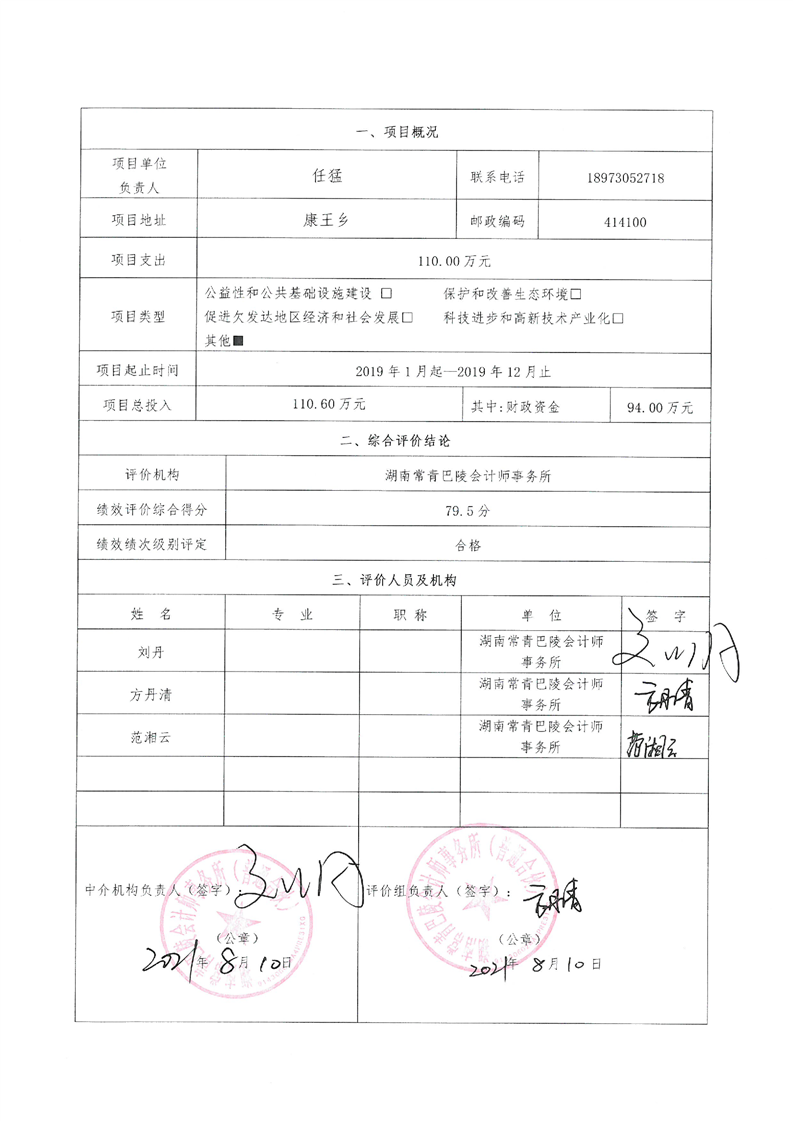 一、项目概况
项目单位
负责人
任猛
联系电话
18973052718
项目地址
康王乡
邮政编码
414100
项目支出
110.00万元
项目类型
公益性和公共基础设施建设 □ 保护和改善生态环境□
促进欠发达地区经济和社会发展□ 科技进步和高新技术产业化□
其他■
项目起止时间
2019年1月起—2019年12月止
项目总投入
110.60万元
其中:财政资金
94.00万元
二、综合评价结论
评价机构
湖南常青巴陵会计师事务所
绩效评价综合得分
79.5分
绩效绩次级别评定
合格
三、评价人员及机构
姓 名 专 业 职 称 单 位 签 字
刘丹
湖南常青巴陵会计师
事务所
方丹清
湖南常青巴陵会计师
事务所
方丹清
范湘云
湖南常青巴陵会计师
事务所
范湘云
中介机构负责人（签字）：
（公章）
2021年 8月 10日
评价组负责人（签字）：
方丹清
（公章）
2021年 8月10日